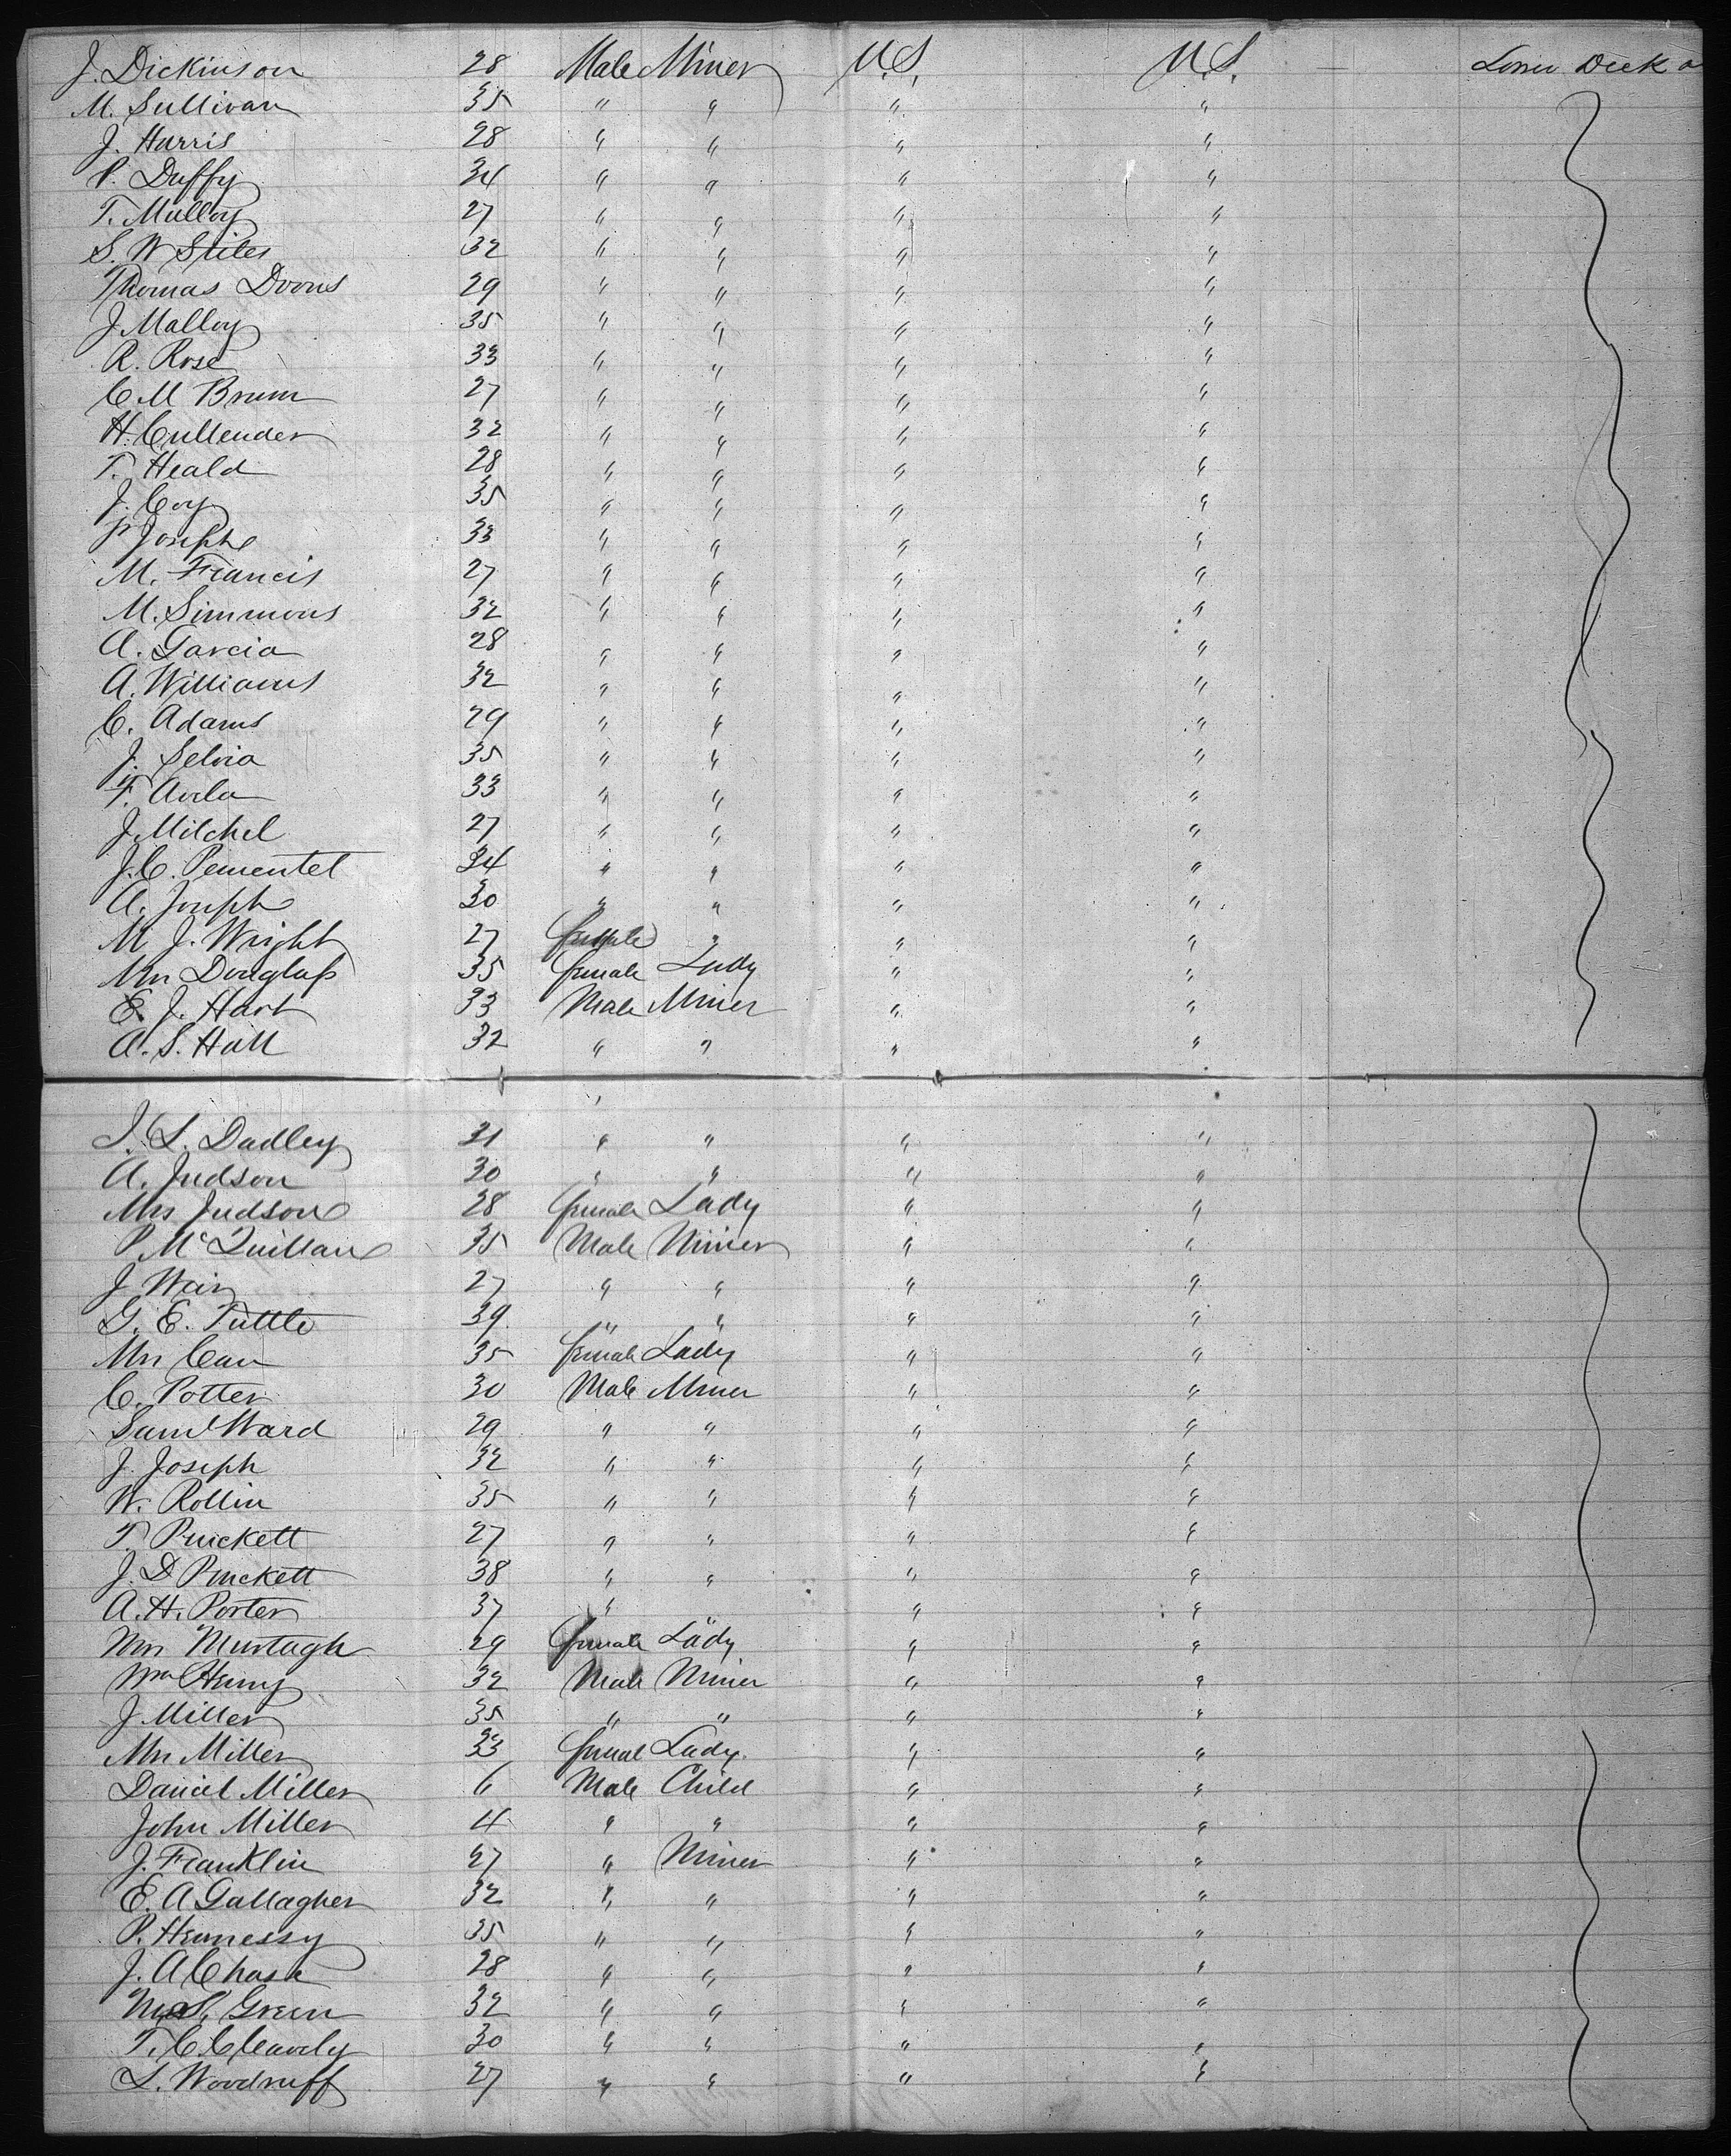 J. Dickinson 28 Male Miner U.S. U.S. — Lower Deck
M. Sullivan 35 " " " "
J. Harris 28 " " " "
P. Duffy 34 " " " "
T. Mulloy 27 " " " "
S. W Stiles 32 " " " "
Thomas Downs 29 " " " "
J. Malloy 35 " " " "
R. Rose 33 " " " "
C. M 27 " " " "
H. Cullender 32 " " " "
T. Heald 28 " " " "
J. Coy 35 " " " "
P Joseph 33 " " " "
M. Francis 27 " " " "
M. Simmons 32 " " " "
A. Garcia 28 " " " "
A. Williams 32 " " " "
C. Adams 29 " " " "
J. Selvia 35 " " " "
F. Avila 33 " " " "
J. Mitchel 27 " " " "
J. C. Pementel 34 " " " "
A. Joseph 30 " " " "
M J. Wright 27 " " "
Mrs Douglass 35 female Lady " "
E. J. Hart 33 Male Miner " "
A. S. Hall 32 " " " "
J. S. Dadley 31 " " " "
A. Judson 30 " " " "
Mrs Judson 28 female Lady " "
P. McQuillan 35 Male Miner " "
J Weir 27 " " " "
G. E. Tuttle 39 " " " "
Mrs 35 female Lady " "
C. Potter 30 Male Miner " "
Saml Ward 29 " " " "
J. Joseph 32 " " " "
W. Rollin 35 " " " "
T. Puickett 27 " " " "
J. D Puickett 38 " " " "
A. H. Porter 37 " " "
Mrs Murtagh 29 female Lady " "
Wm Henry 32 Male Miner " "
J. Miller 35 " " " "
Mrs Miller 33 femal Lady " "
Daniel Miller 6 Male Child " "
John Miller 4 " " " "
J. Franklin 27 " Miner " "
E. A Gallagher 32 " " " "
P. Hennessy 35 " " " "
J. A Chase 28 " " " "
S. Green 32 " " " "
T. C. Cleavely 30 " " " "
L. Woodruff 27 " " " "